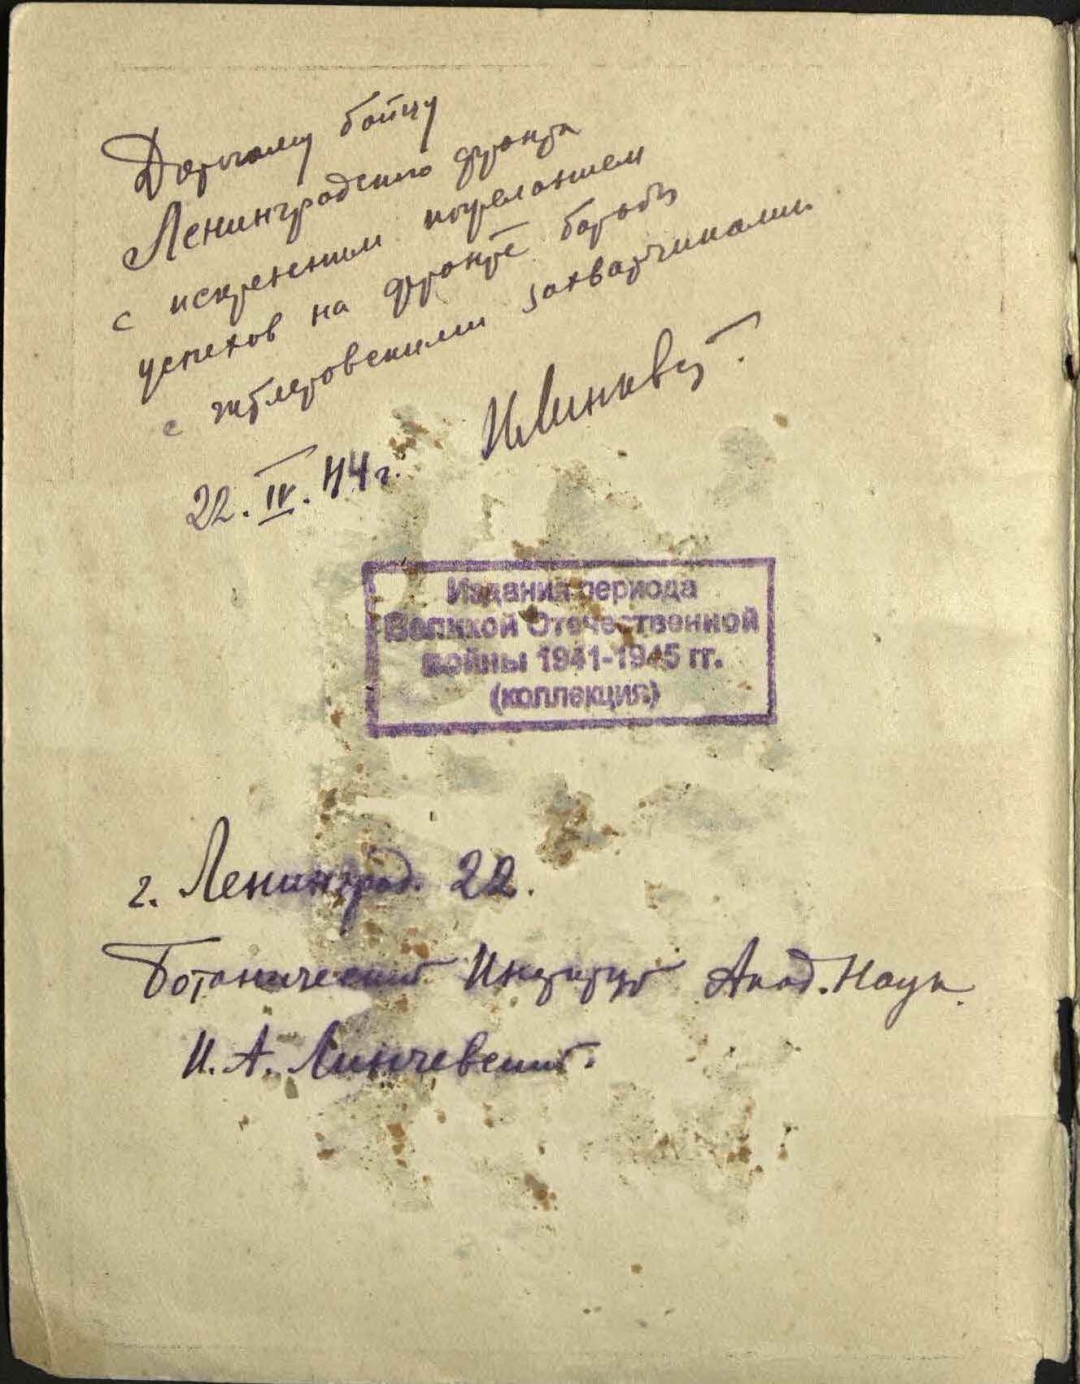 Дорогому бойцу
Ленинградского фронта
с искренним пожеланием
успехов на фронте борьбы
с гитлеровскими захватчиками
22.IV.44г.
Издания периода
Великой Отечественной
войны 1941-1945 гг.
(коллекция)
г. Ленинград. 22.
Ботанический Институт Акад. Наук.
И. А. Линчевский.